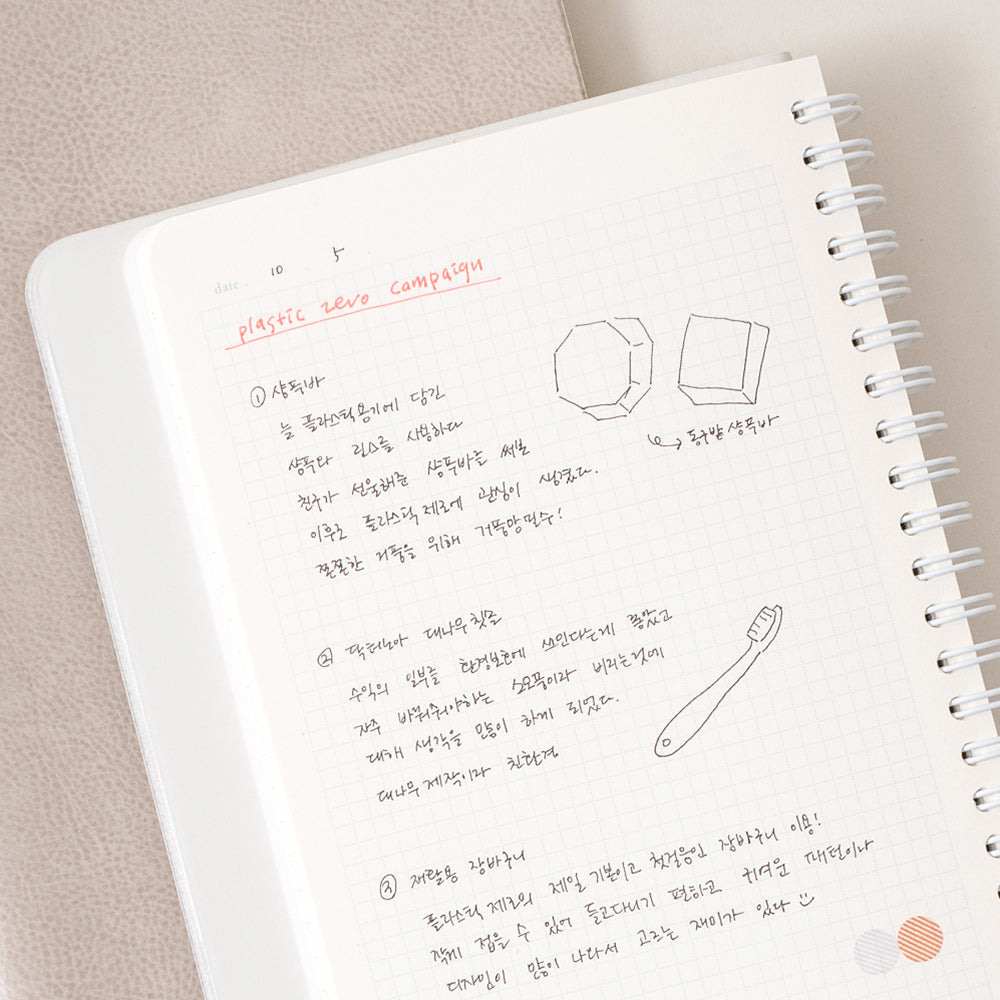 date . 10 . 5 .
plastic zero campaign
① 샴푸바
늘 플라스틱용기에 담긴
샴푸와 린스를 사용하다
친구가 선물해준 샴푸바를 써본
이후로 플라스틱 제로에 관심이 생겼다.
쫀쫀한 거품을 위해 거품망필수!
동구밭 샴푸바
② 닥터노아 대나무칫솔
수익의 일부를 환경보호에 쓰인다는게 좋았고
자주 바꿔줘야하는 소모품이라 버리는것에
대해 생각을 많이 하게 되었다.
대나무 제작이라 친환경
③ 재활용 장바구니
플라스틱 제로의 제일 기본이고 첫걸음인 장바구니 이용!
작게 접을 수 있어 들고다니기 편하고 귀여운 패턴이나
디자인이 많이 나와서 고르는 재미가 있다